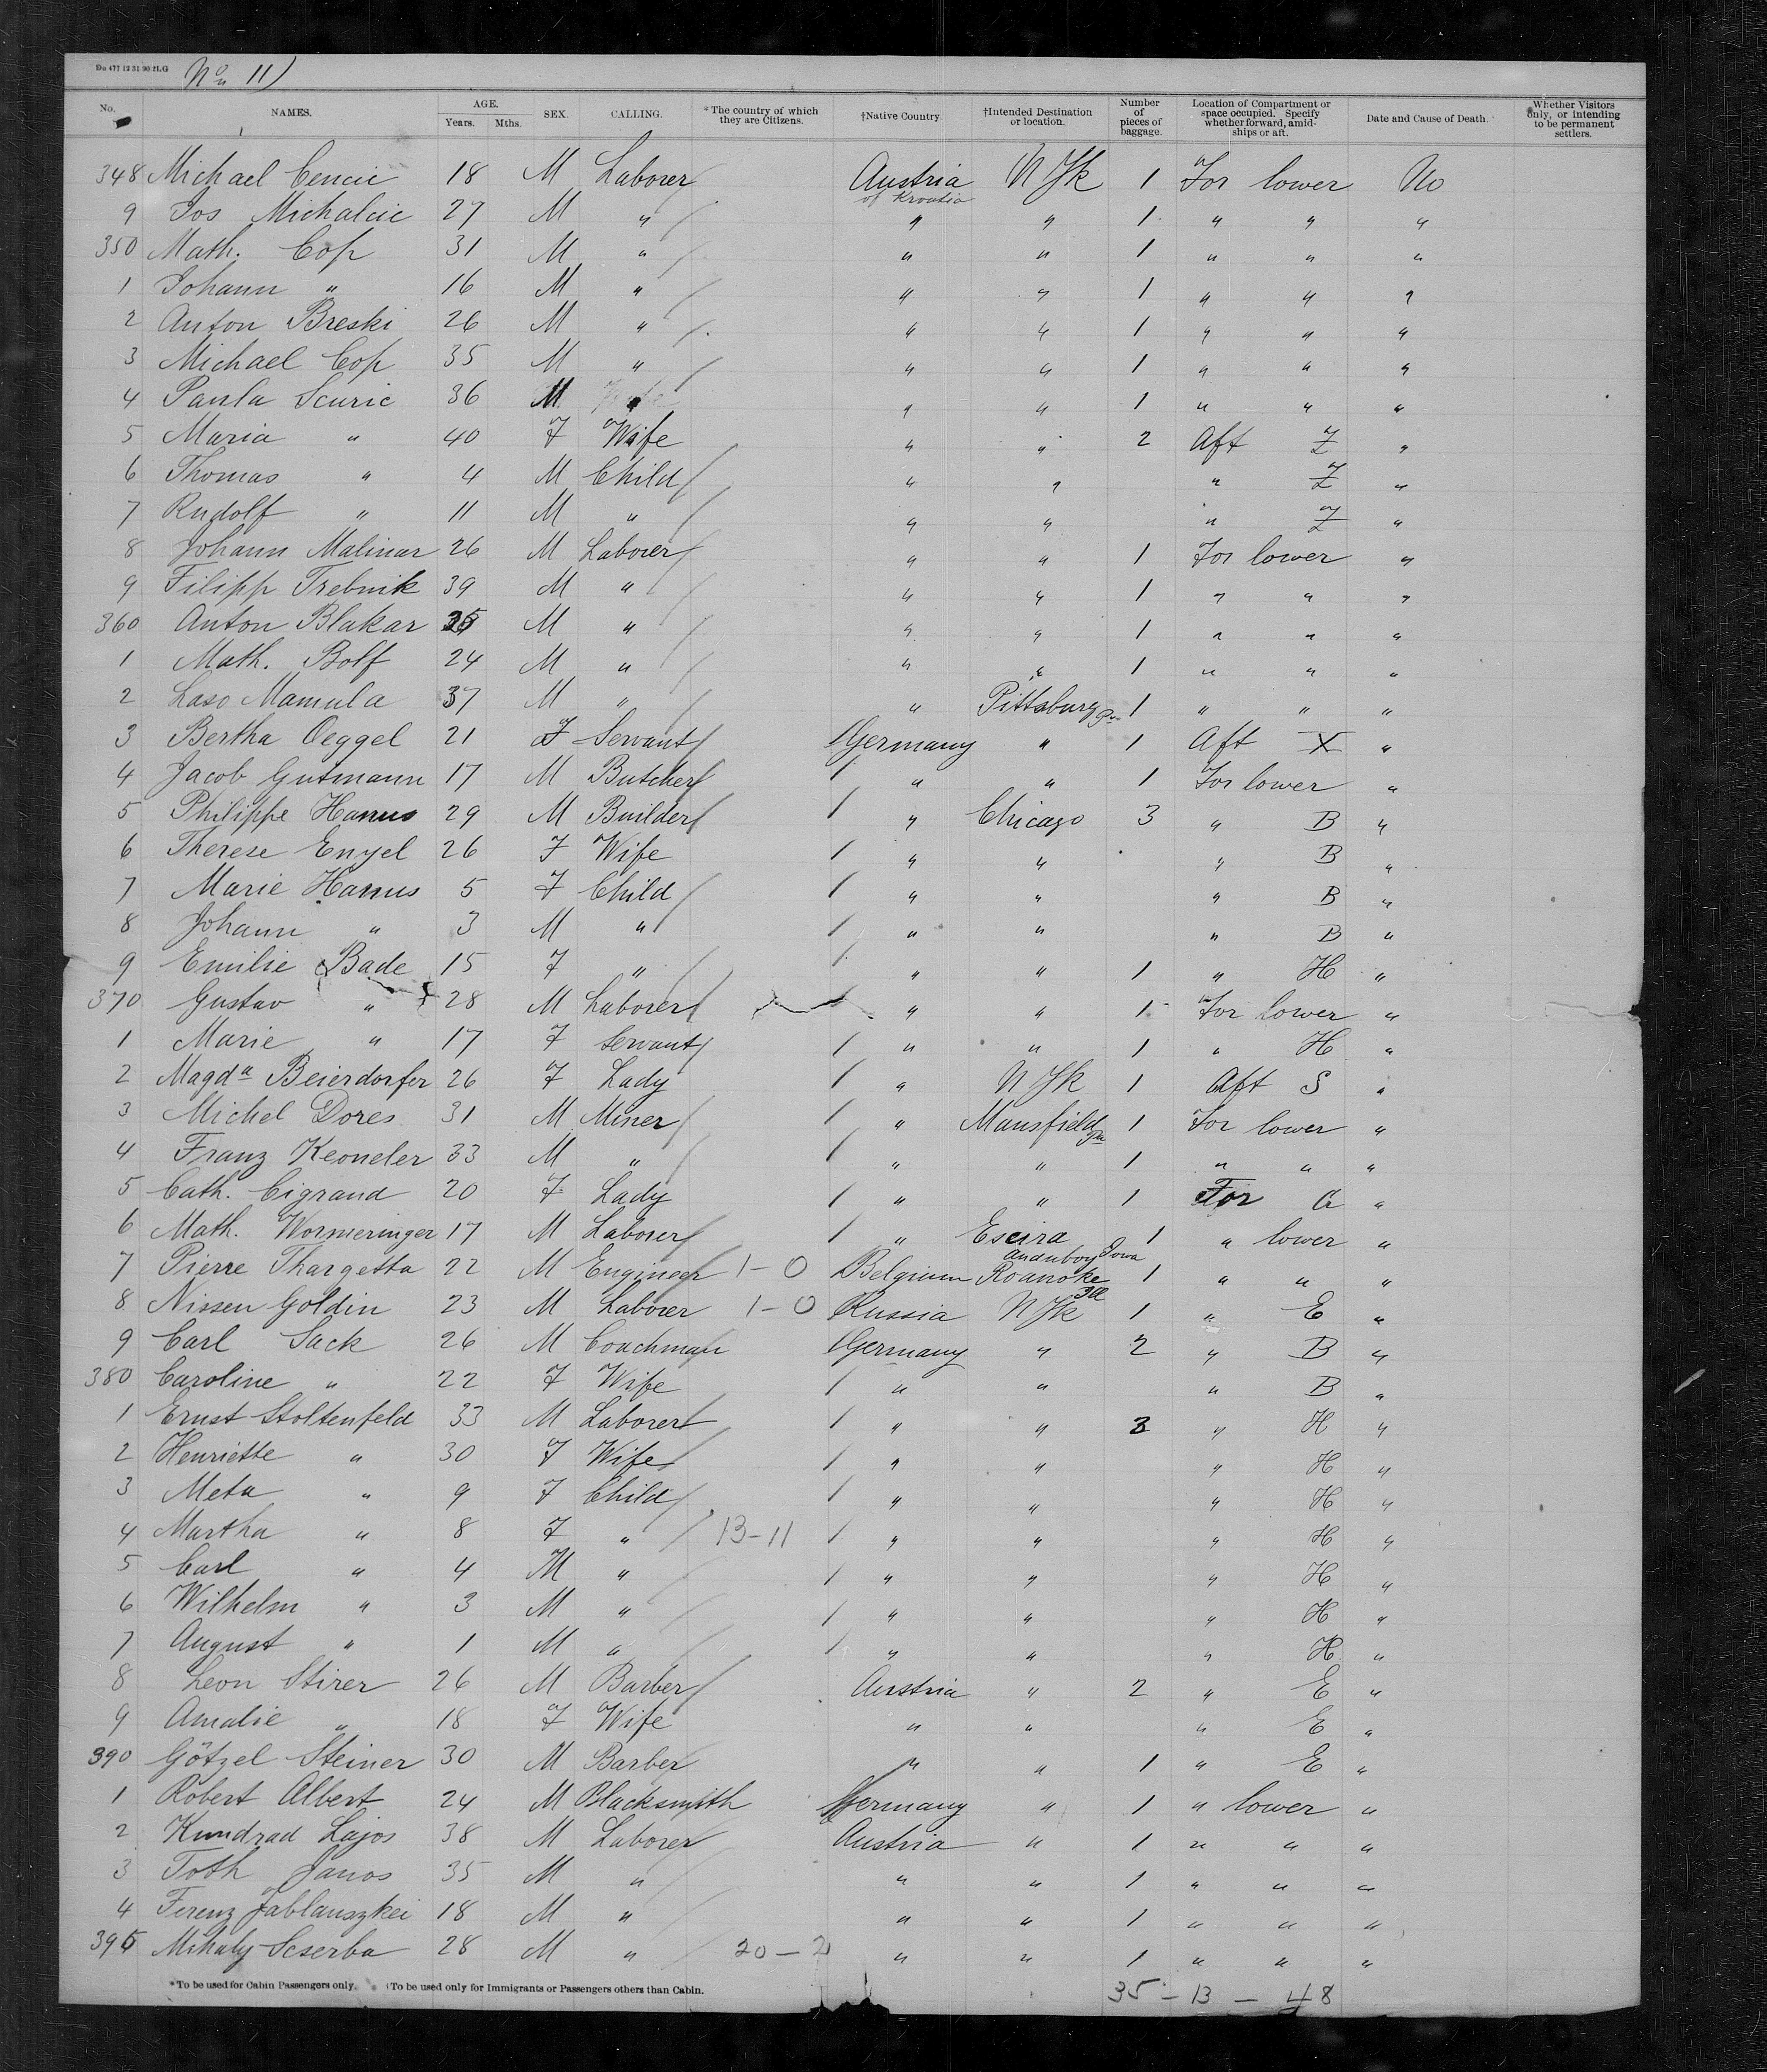 Du 477 12 31 90 2LG No 11)
No. NAMES. AGE. Years. Mths. SEX. CALLING. *The country of which they are Citizens. †Native Country. †Intended Destination or location. Number of pieces of baggage. Location of Compartment or space occupied. Specify whether forward, amidships or aft. Date and Cause of Death. Whether Visitors only, or intending to be permanent settlers.
348 Michael Cencic 18 M Laborer Austria of Kroatia N Yk 1 For lower No
9 Jos Michalcic 27 M " " " 1 " " "
350 Math. Cop 31 M " " " 1 " " "
1 Johann " 16 M " " " 1 " " "
2 Anton Breski 26 M " " " 1 " " "
3 Michael Cop 35 M " " " 1 " " "
4 Paula Scuric 36 M " " " 1 " " "
5 Maria " 40 F Wife " " 2 Aft Z "
6 Thomas " 4 M Child " " " Z "
7 Rudolf " 11 M " " " " Z "
8 Johann Malinar 26 M Laborer " " 1 For lower "
9 Filipp Trebnik 39 M " " " 1 " " "
360 Anton Blakar M " " " 1 " " "
1 Math. Bolf 24 M " " " 1 " " "
2 Laso Mamula 37 M " " Pittsburg Pa 1 " " "
3 Bertha Oeggel 21 F Servant Germany " 1 Aft X "
4 Jacob Gutmann 17 M Butcher " " 1 For lower "
5 Philippe Hanus 29 M Builder " Chicago 3 " B "
6 Therese Engel 26 F Wife " " " B "
7 Marie Hanus 5 F Child " " " B "
8 Johann " 3 M " " " " B "
9 Emilie Bade 15 F " " " 1 " H "
370 Gustav " 28 M Laborer " " 1 For lower "
1 Marie " 17 F Servant " " 1 " H "
2 Magda Beierdorfer 26 F Lady " N Yk 1 Aft S "
3 Michel Dores 31 M Miner " Mansfield Pa 1 For lower "
4 Franz Keoneler 33 M " " " 1 " " "
5 Cath. Cigrand 20 F Lady " " 1 For G "
6 Math. Wormeringer 17 M Laborer " Escira Iowa 1 " lower "
7 Pierre Thargetta 22 M Engineer 1-0 Belgium Roanoke Ill 1 " " "
8 Nissen Goldin 23 M Laborer 1-0 Russia N Yk 1 " E "
9 Carl Sack 26 M Coachman Germany " 2 " B "
380 Caroline " 22 F Wife " " " B "
1 Ernst Stoltenfeld 33 M Laborer " " 3 " H "
2 Henriette " 30 F Wife " " " H "
3 Meta " 9 F Child " " " H "
4 Martha " 8 F " 13-11 " " " H "
5 Carl " 4 M " " " " H "
6 Wilhelm " 3 M " " " " H "
7 August " 1 M " " " " H "
8 Leon Stirer 26 M Barber Austria " 2 " E "
9 Amalie " 18 F Wife " " " E "
390 Götzel Steiner 30 M Barber " " 1 " E "
1 Robert Albert 24 M Blacksmith Germany " 1 " lower "
2 Kundrad Lajos 38 M Laborer Austria " 1 " " "
3 Toth Janos 35 M " " " 1 " " "
4 Ferenz Jablanszkei 18 M " " " 1 " " "
395 Mihaly Scserba 28 M " 20-2 " " 1 " " "
*To be used for Cabin Passengers only. †To be used only for Immigrants or Passengers others than Cabin. 35 - 13 - 48